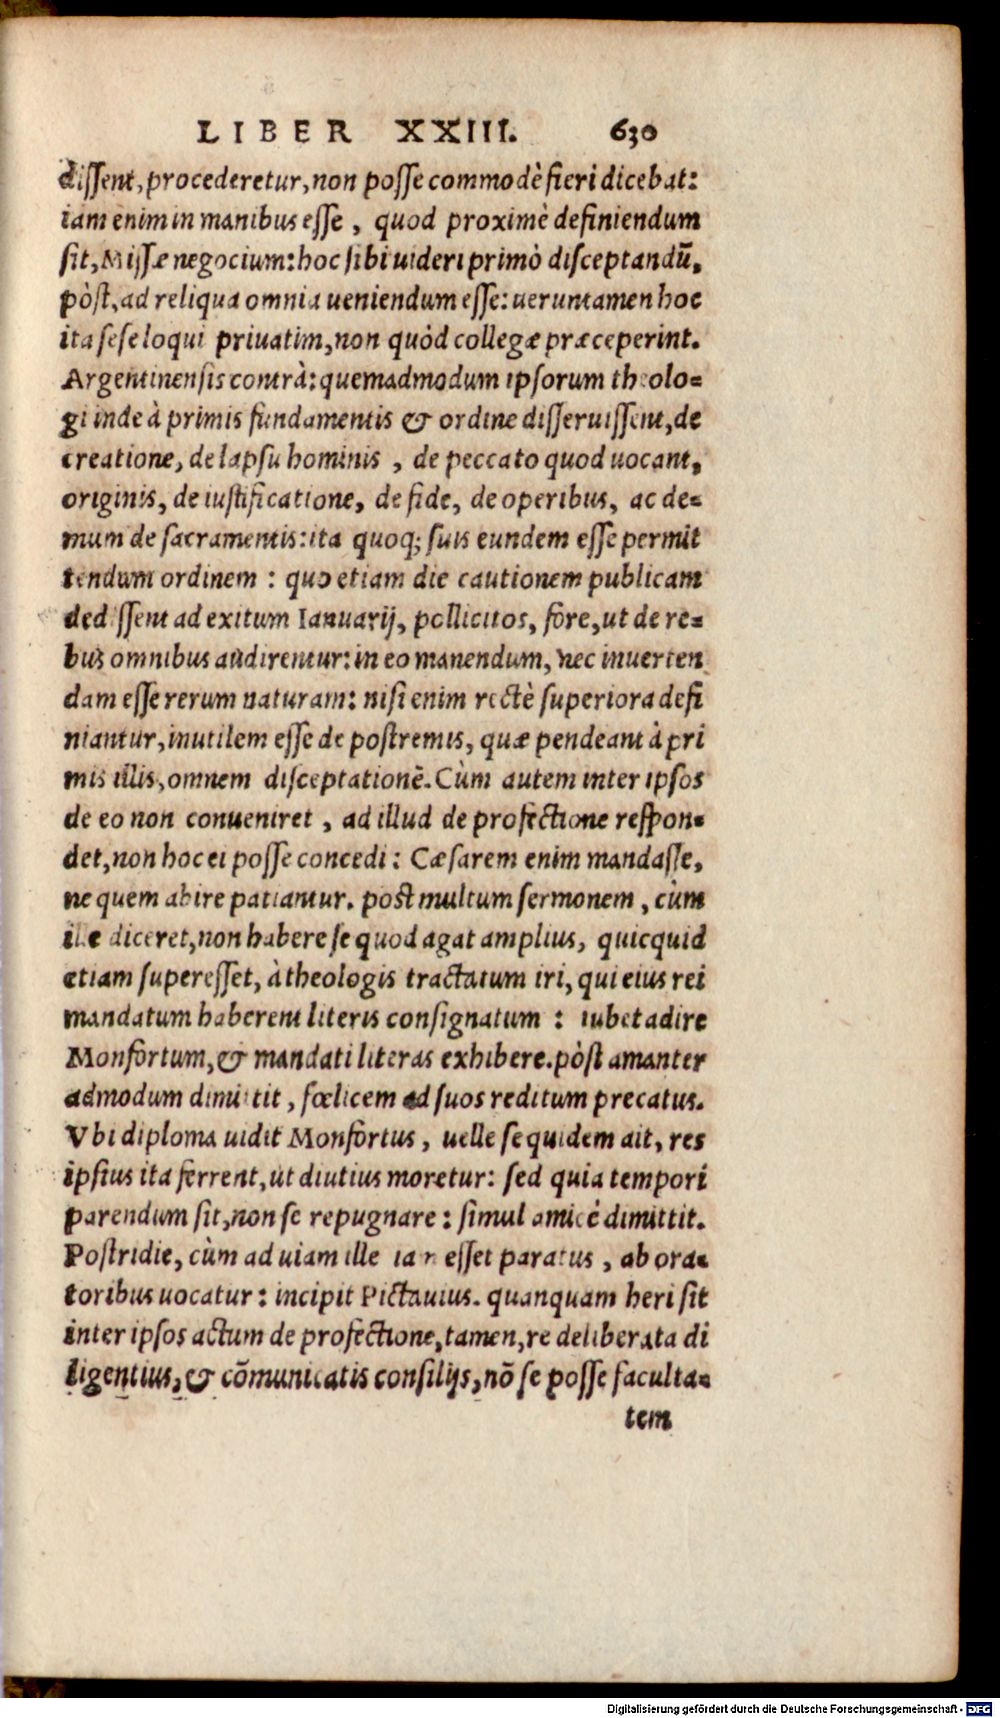 LIBER XXIII. 630
dissent, procederetur, non posse commodè fieri dicebat:
iam enim in manibus esse, quod proximè definiendum
sit, Missæ negocium: hoc sibi uideri primò disceptandũ,
pòst, ad reliqua omnia ueniendum esse: ueruntamen hoc
ita sese loqui priuatim, non quòd collegæ præceperint.
Argentinensis contrà: quemadmodum ipsorum theolo=
gi inde à primis fundamentis & ordine disseruissent, de
creatione, de lapsu hominis, de peccato quod uocant,
originis, de iustificatione, de fide, de operibus, ac de=
mum de sacramentis: ita quoq; suis eundem esse permit
tendum ordinem: quo etiam die cautionem publicam
dedissent ad exitum Ianuarij, pollicitos, fore, ut de re=
bus omnibus audirentur: in eo manendum, nec inuerten
dam esse rerum naturam: nisi enim rectè superiora defi
niantur, inutilem esse de postremis, quæ pendeant à pri
mis illis, omnem disceptationẽ. Cùm autem inter ipsos
de eo non conueniret, ad illud de profectione respon=
det, non hoc ei posse concedi: Cæsarem enim mandasse,
ne quem abire patiantur. post multum sermonem, cùm
ille diceret, non habere se quod agat amplius, quicquid
etiam superesset, à theologis tractatum iri, qui eius rei
mandatum haberent literis consignatum: iubet adire
Monfortum, & mandati literas exhibere. pòst amanter
admodum dimittit, fœlicem ad suos reditum precatus.
Vbi diploma uidit Monfortus, uelle se quidem ait, res
ipsius ita ferrent, ut diutius moretur: sed quia tempori
parendum sit, non se repugnare: simul amicè dimittit.
Postridie, cùm ad uiam ille iam esset paratus, ab ora=
toribus uocatur: incipit Pictauius. quanquam heri sit
inter ipsos actum de profectione, tamen, re deliberata di
ligentius, & cõmunicatis consilijs, nõ se posse faculta=
tem
Digitalisierung gefördert durch die Deutsche Forschungsgemeinschaft - DFG